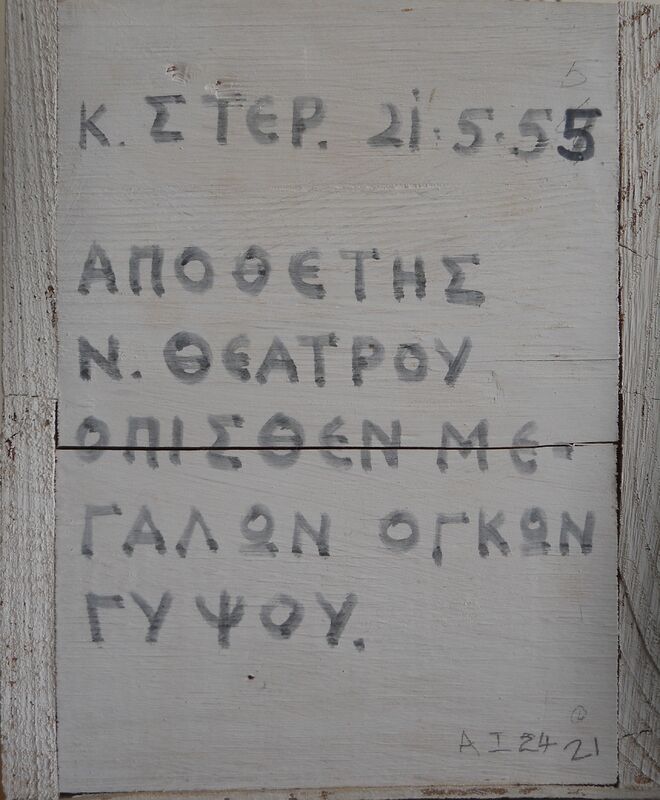 Κ. ΣΤΕΡ. 21·5·55
ΑΠΟΘΕΤΗΣ
Ν. ΘΕΑΤΡΟΥ
ΟΠΙΣΘΕΝ ΜΕ-
ΓΑΛΩΝ ΟΓΚΩΝ
ΓΥΨΟΥ.
Α Ι 24 21